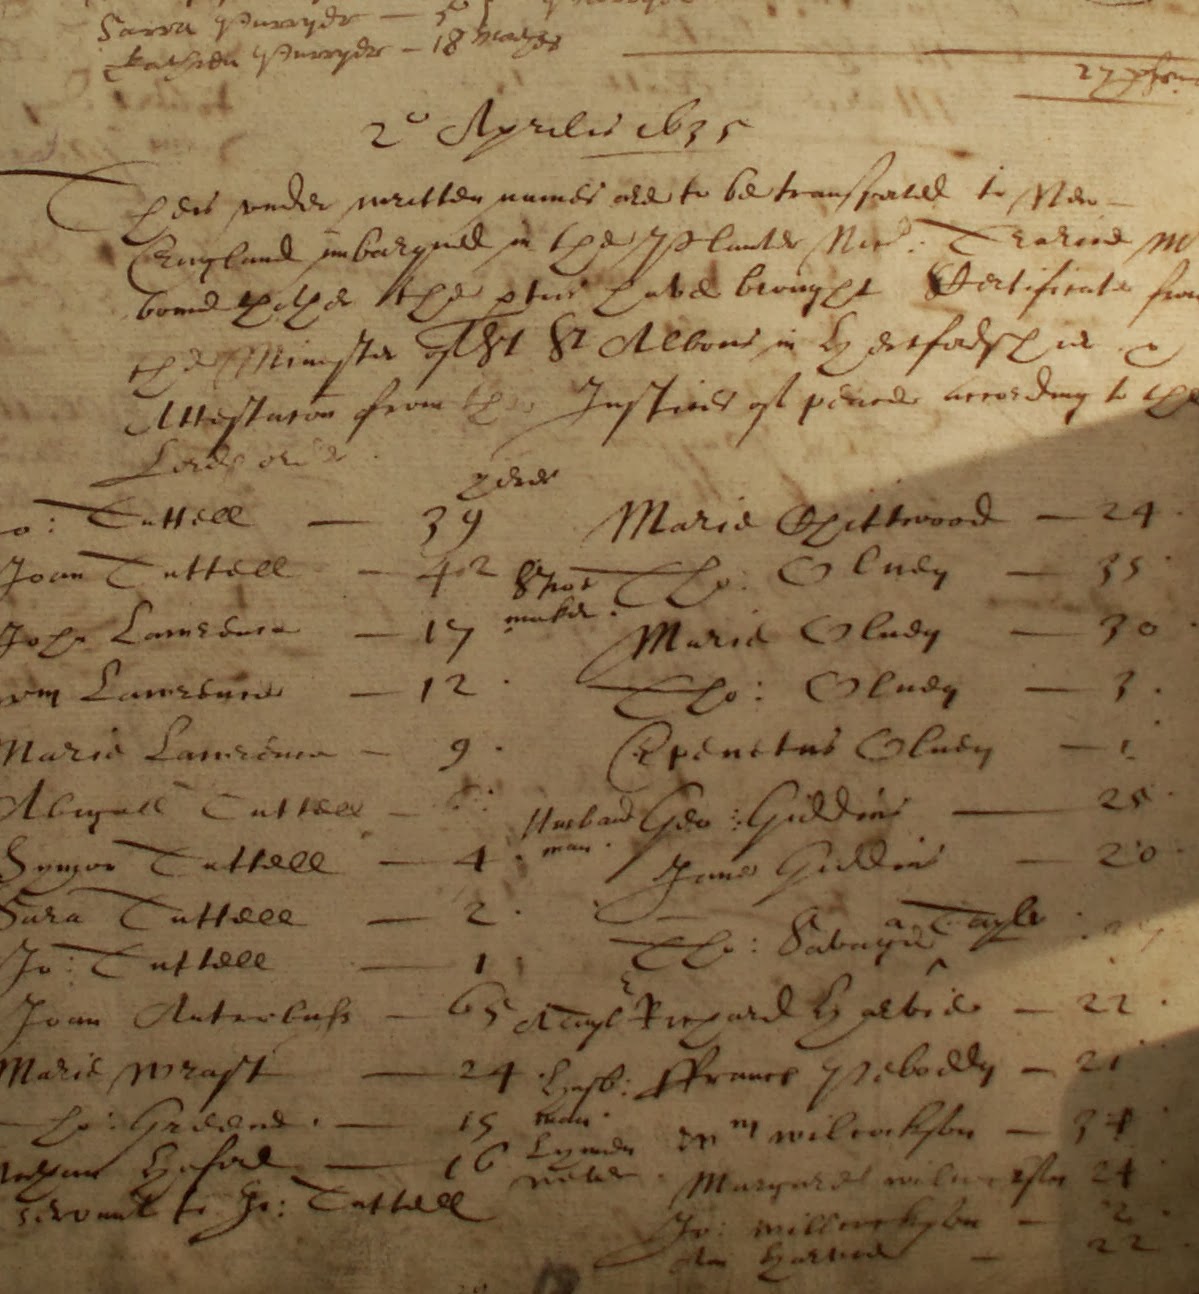 Sarra Purryer — 5
Kathren Purryer — 18 Moneths
27 pson
2° Aprilis 1635
Theis under written names are to be transported to New-
England imbarqued in the Planter Nic°: Trarice Mr
bound thither the pties have brought Certificate from
the Minister of St St Albons in Hertfordshier &
Attestacon from the Justices of peace according to the
Lords order.
yeres
Jo: Tuttell — 39
Joan Tuttell — 42
John Lawrence — 17
Wm Lawrence — 12
Marie Lawrence — 9
Abigall Tuttell — 6
Symon Tuttell — 4
Sara Tuttell — 2
Jo: Tuttell — 1
Joan Antrobuss — 65
Marie Wrast — 24
Tho: Greene — 15
Nathan Heford — 16
servant to Jo: Tuttell
Marie Chittwood — 24
Shoemaker Tho: Olney — 35
Marie Olney — 30
Tho: Olney — 3
Epenetus Olney — 1
Husbandman Geo: Giddins — 25
Jane Giddins — 20
Tho: Savage a Tayler 27
A Tayler Richard Harvie — 22
Husbman ffrancs Peboddy — 21
Lynnen wever Wm Wilcockson — 34
Margaret Wilcockson 24
Jo: Willcockson — 2
Ann Harvie — 22